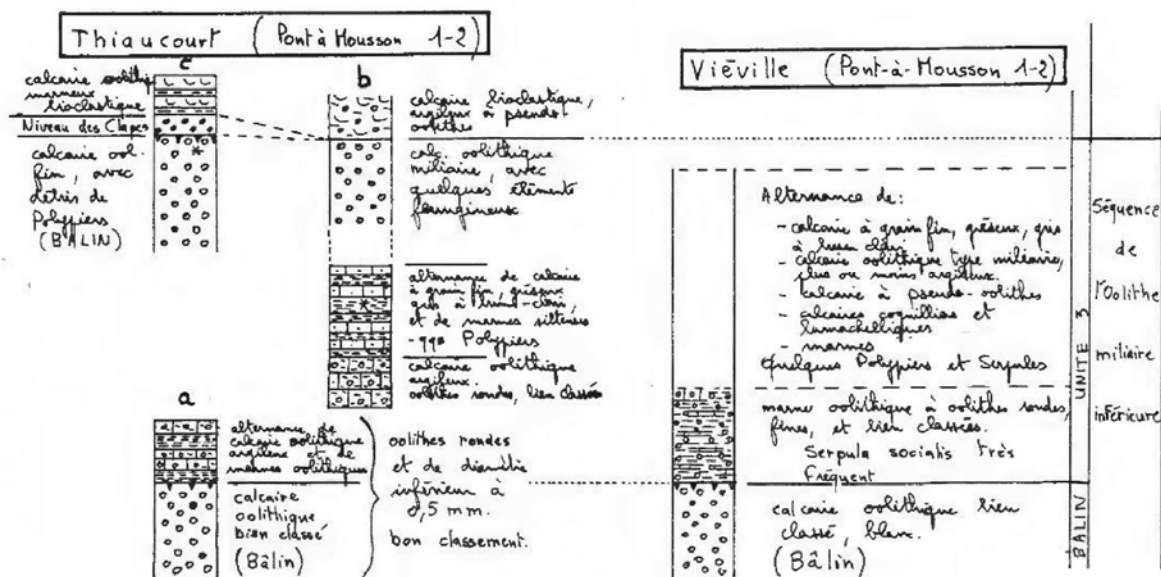 Thiaucourt ( Pont à Mousson 1-2)
c
calcaire oolithiq
marneux
bioclastique
Niveau des Clapes
calcaire ool.
fin, avec
débris de
Polypiers
(BÂLIN)
b
calcaire bioclastique,
argileux à pseudo-
oolithes
calc. oolithique
miliaire, avec
quelques éléments
ferrugineux
alternance de calcaire
à grain fin, gréseux
gris à brun-clair,
et de marnes silteuses
- qqs Polypiers
calcaire oolithique
argileux.
oolithes rondes, bien classées
a
alternance de
calcaire oolithique
argileux et de
marnes oolithiques
calcaire
oolithique
bien classé
(Bâlin)
oolithes rondes
et de diamètre
inférieur à
0,5 mm.
bon classement.
Viéville (Pont-à-Mousson 1-2)
Alternance de:
- calcaire à grain fin, gréseux, gris
à brun clair
- calcaire oolithique type miliaire,
plus ou moins argileux.
- calcaire à pseudo-oolithes
- calcaires coquilliers et
lumachelliques
- marnes
Quelques Polypiers et Serpules
marne oolithique à oolithes rondes,
fines, et bien classées.
Serpula socialis très
fréquent
calcaire oolithique bien
classé, blanc.
(Bâlin)
UNITE 3
BÂLIN
Séquence
de
l'Oolithe
miliaire
inférieure